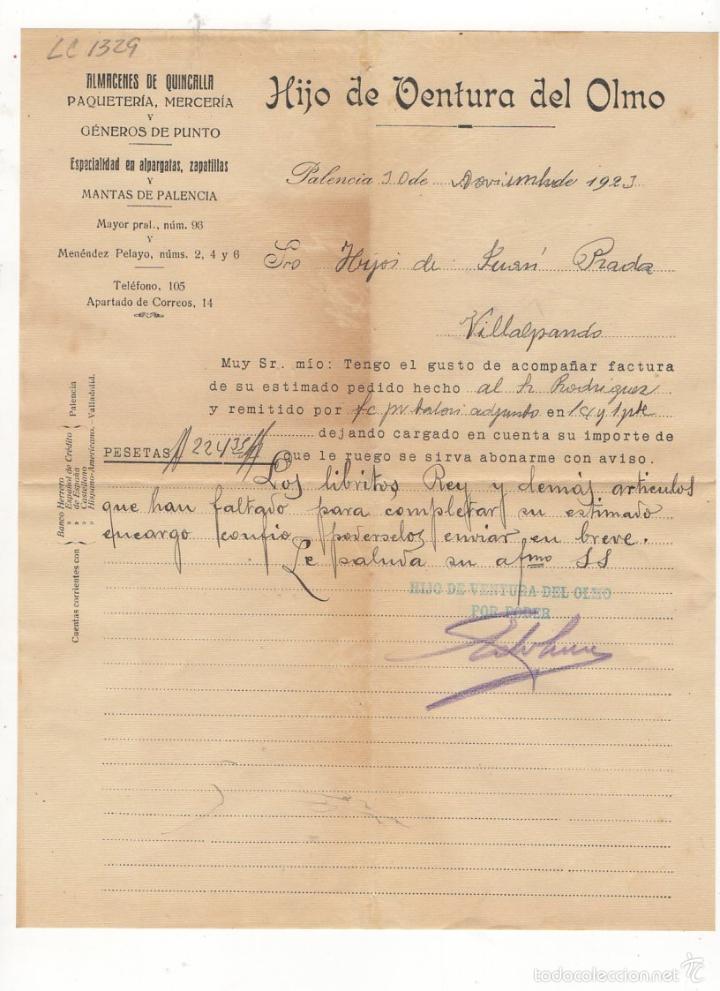 LC 1329
ALMACENES DE QUINCALLA
PAQUETERÍA, MERCERÍA
Y
GÉNEROS DE PUNTO
Especialidad en alpargatas, zapatillas
Y
MANTAS DE PALENCIA
Mayor pral., núm. 96
Y
Menéndez Pelayo, núms. 2, 4 y 6
Teléfono, 105
Apartado de Correos, 14
Hijo de Ventura del Olmo
Palencia 30 de Noviembre de 1923
Sro Hijos de Prada
Villalpando
Muy Sr. mío: Tengo el gusto de acompañar factura
de su estimado pedido hecho al Sr Rodriguez
y remitido por f.c. pv talon adjunto en
dejando cargado en cuenta su importe de
PESETAS 22435 que le ruego se sirva abonarme con aviso.
Los libritos Rey y demás articulos
que han faltado para completar su estimado
encargo confio poderselos enviar en breve.
Le saluda su afmo SS
HIJO DE VENTURA DEL OLMO
POR PODER
Cuentas corrientes con
Banco Herrero
» Español de Crédito
» de España
» Castellano
» Hispano-Americano.-Valladolid.
Palencia
todocoleccion.net